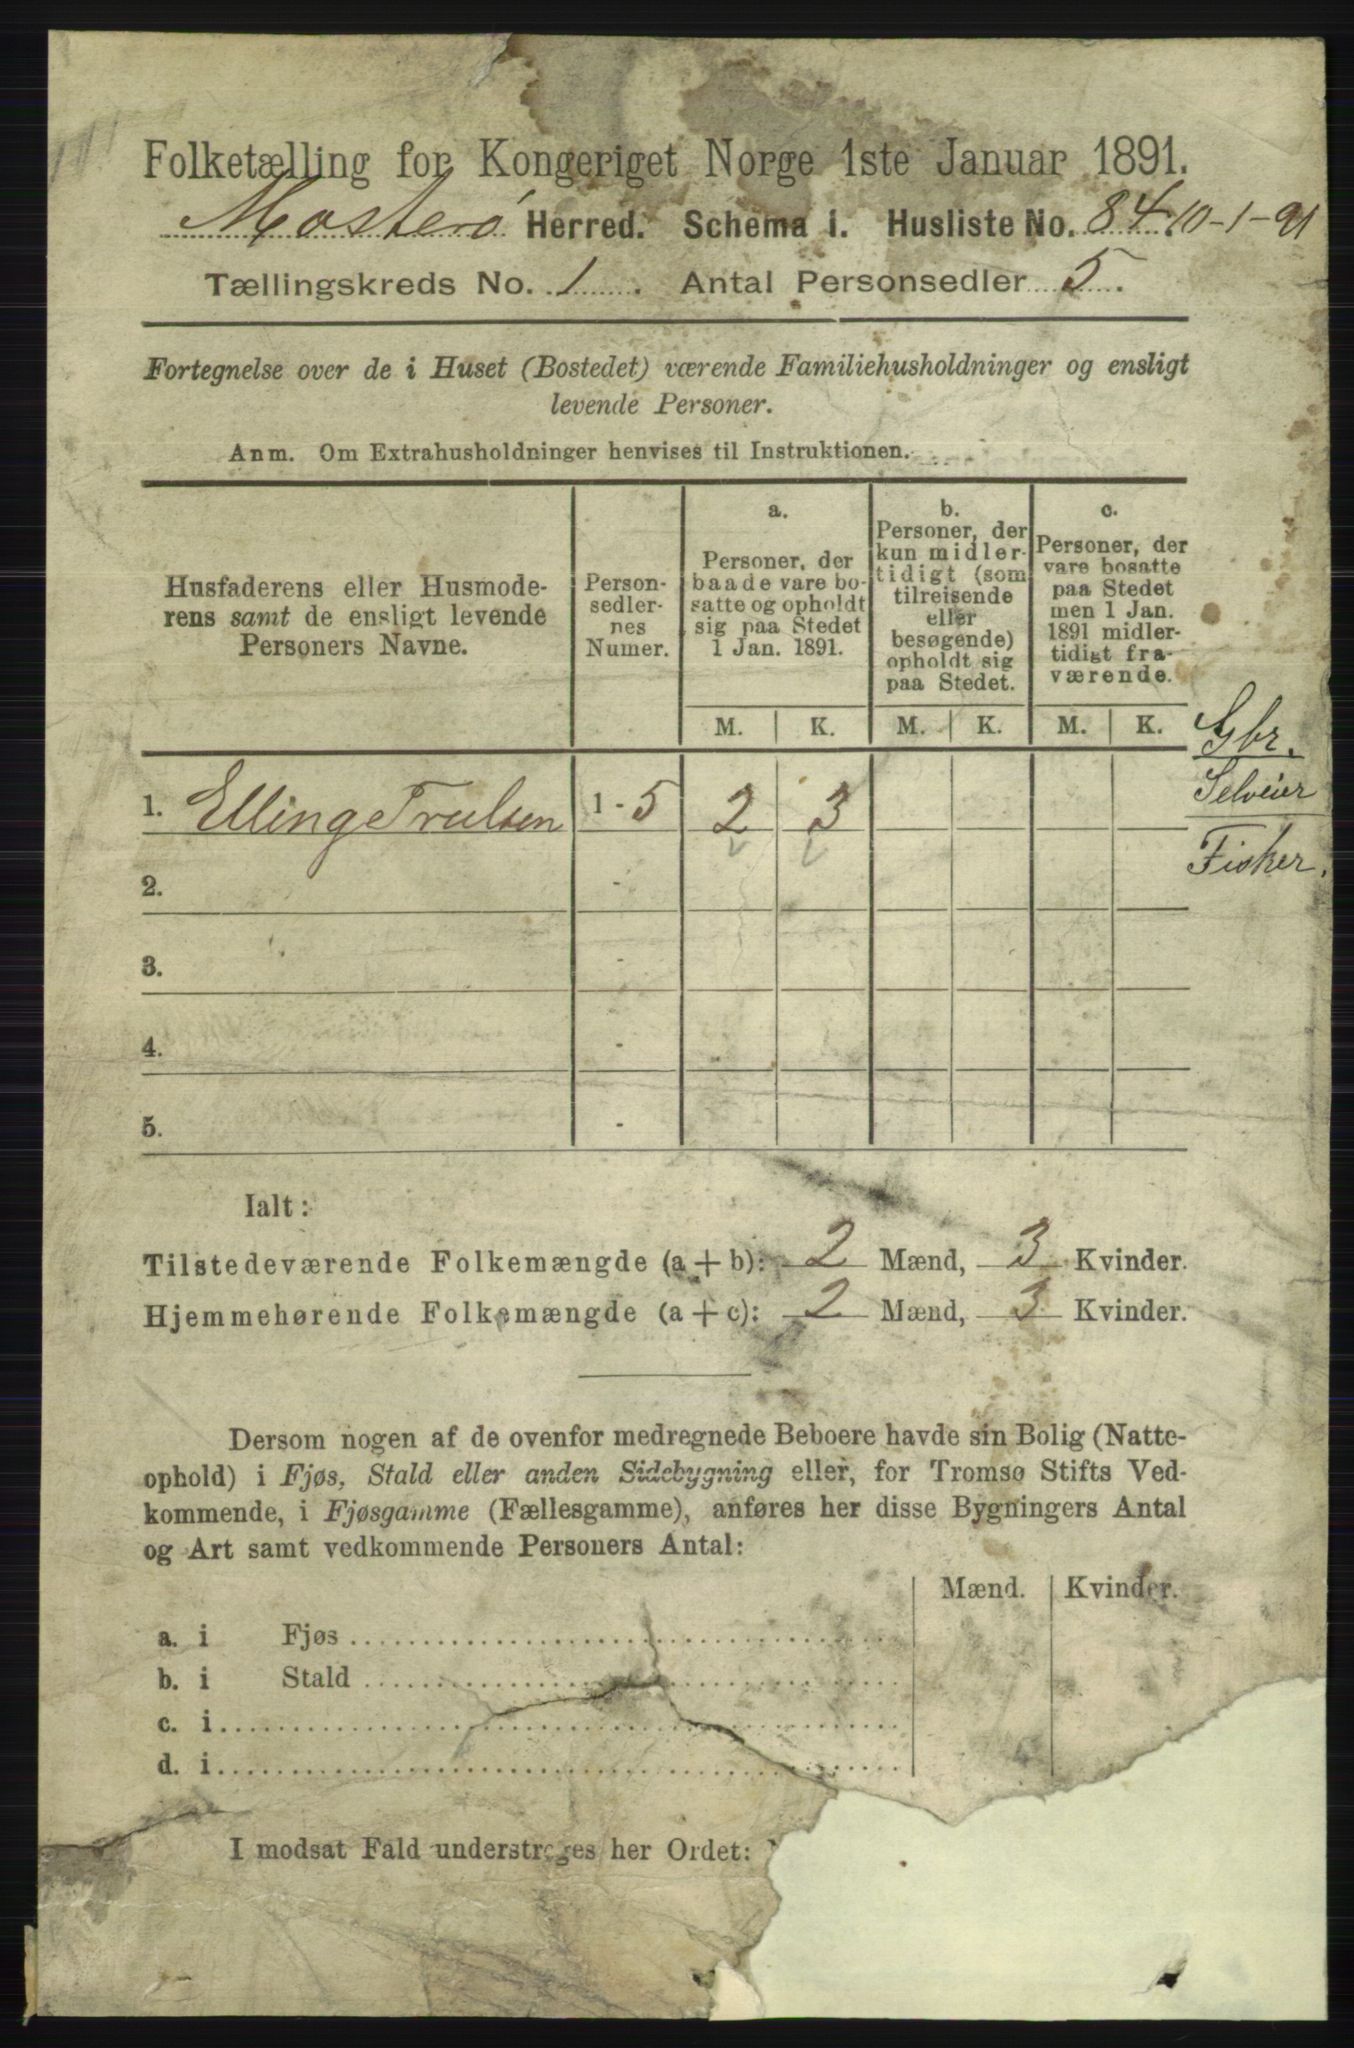 Folketælling for Kongeriget Norge 1ste Januar 1891.
Mosterø Herred. Schema 1. Husliste No. 84. 10-1-91
Tællingskreds No. 1. Antal Personsedler 5.
Fortegnelse over de i Huset (Bostedet) værende Familiehusholdninger og ensligt
levende Personer.
Anm. Om Extrahusholdninger henvises til Instruktionen.
Husfaderens eller Husmode-
rens samt de ensligt levende
Personers Navne.
Person-
sedler-
nes
Numer.
a.
Personer, der
baade vare bo-
satte og opholdt
sig paa Stedet
1 Jan. 1891.
b.
Personer, der
kun midler-
tidigt (som
tilreisende
eller
besøgende)
opholdt sig
paa Stedet.
c.
Personer, der
vare bosatte
paa Stedet
men 1 Jan.
1891 midler-
tidigt fra-
værende.
M. K. M. K. M. K.
Gbr.
Selveier
Fisker.
1. Elling Trulsen 1 - 5 2 3
2. -
3. -
4. -
5. -
Ialt:
Tilstedeværende Folkemængde (a + b): 2 Mænd, 3 Kvinder.
Hjemmehørende Folkemængde (a + c): 2 Mænd, 3 Kvinder.
Dersom nogen af de ovenfor medregnede Beboere havde sin Bolig (Natte-
ophold) i Fjøs, Stald eller anden Sidebygning eller, for Tromsø Stifts Ved-
kommende, i Fjøsgamme (Fællesgamme), anføres her disse Bygningers Antal
og Art samt vedkommende Personers Antal:
Mænd. Kvinder.
a. i Fjøs
b. i Stald
c. i
d. i
I modsat Fald understreges her Ordet: